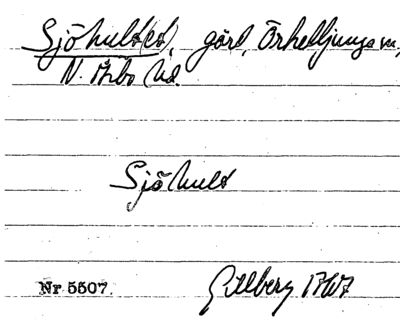 Sjöhult(et), gård, Örkelljunga sn,
N. Åsbo hd.
Sjöhult
Nr 5507. Gillberg 1767